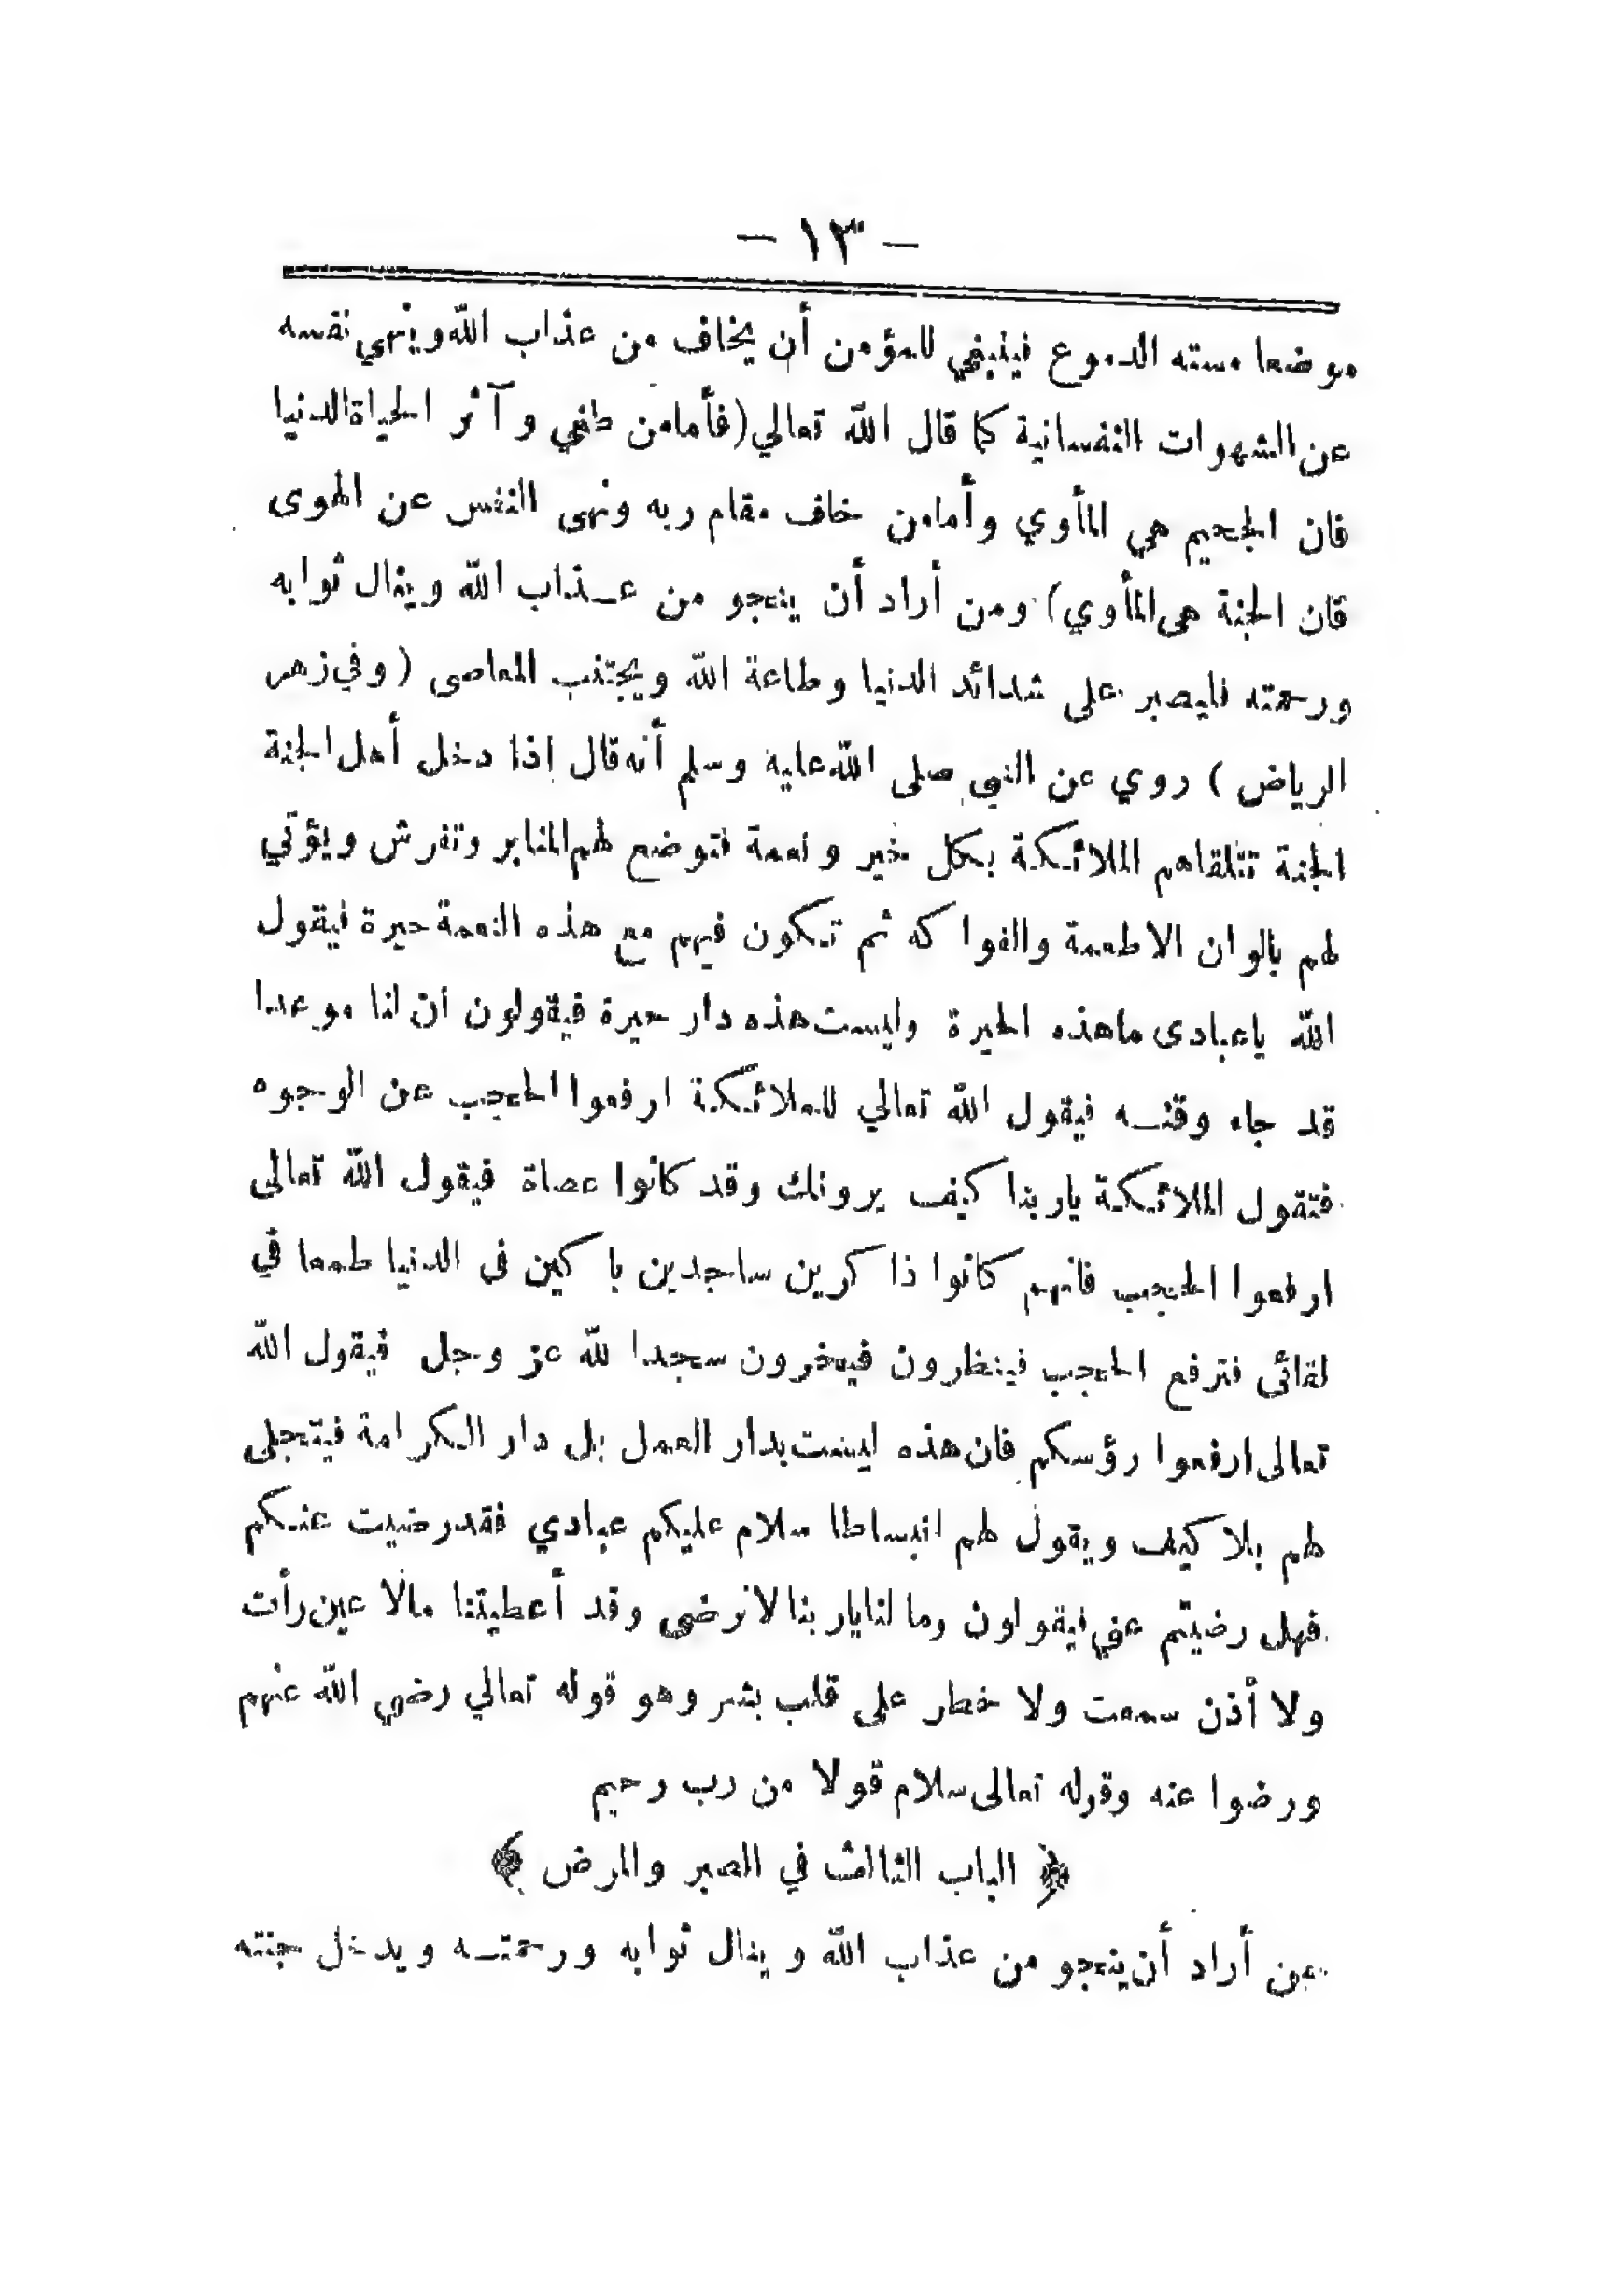 — ١٣ —
موضعا مسته الدموع فينبغي للمؤمن أن يخاف من عذاب الله وينهي نفسه
عن الشهوات النفسانية كما قال الله تعالي (فأما من طغي وآثر الحياة الدنيا
فان الجحيم هي المأوي وأما من خاف مقام ربه ونهى النفس عن الهوى
فان الجنة هى المأوي) ومن أراد أن ينجو من عـذاب الله وينال ثوابه
ورحمته فليصبر على شدائد الدنيا وطاعة الله ويجتنب المعاصى (وفي زهر
الرياض) روي عن النبي صلى الله عليه وسلم أنه قال إذا دخل أهل الجنة
الجنة تتلقاهم الملائكة بكل خير ونعمة فتوضع لهم المنابر وتفرش ويؤتي
لهم بالوان الاطعمة والفواكه ثم تكون فيهم مع هذه النعمة حيرة فيقول
الله ياعبادى ماهذه الحيرة وليست هذه دار حيرة فيقولون ان لنا موعدا
قد جاء وقتـه فيقول الله تعالي للملائكة ارفعوا الحجب عن الوجوه
فتقول الملائكة ياربنا كيف يرونك وقد كانوا عصاة فيقول الله تعالى
ارفعوا الحجب فانهم كانوا ذاكرين ساجدين باكين فى الدنيا طمعا في
لقائى فترفع الحجب فينظرون فيخرون سجدا لله عز وجل فيقول الله
تعالى ارفعوا رؤسكم فان هذه ليست بدار العمل بل دار الكرامة فيتجلى
لهم بلا كيف ويقول لهم انبساطا سلام عليكم عبادي فقد رضيت عنكم
فهل رضيتم عني فيقولون وما لنا ياربنا لا نرضى وقد أعطيتنا مالا عين رأت
ولا أذن سمعت ولا خطر على قلب بشر وهو قوله تعالي رضي الله عنهم
ورضوا عنه وقوله تعالى سلام قولا من رب رحيم
﴿ الباب الثالث في الصبر والمرض ﴾
من أراد أن ينجو من عذاب الله وينال ثوابه ورحمتـه ويدخل جنته